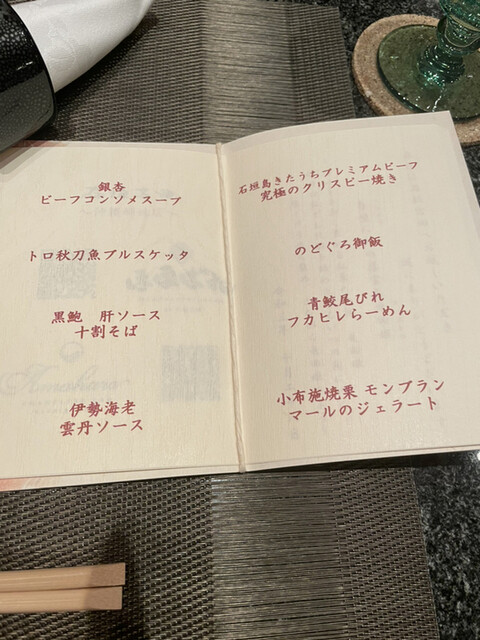 銀杏
ビーフコンソメスープ
トロ秋刀魚ブルスケッタ
黒鮑　肝ソース
十割そば
伊勢海老
雲丹ソース
石垣島きたうちプレミアムビーフ
究極のクリスピー焼き
のどぐろ御飯
青鮫尾びれ
フカヒレらーめん
小布施焼栗 モンブラン
マールのジェラート